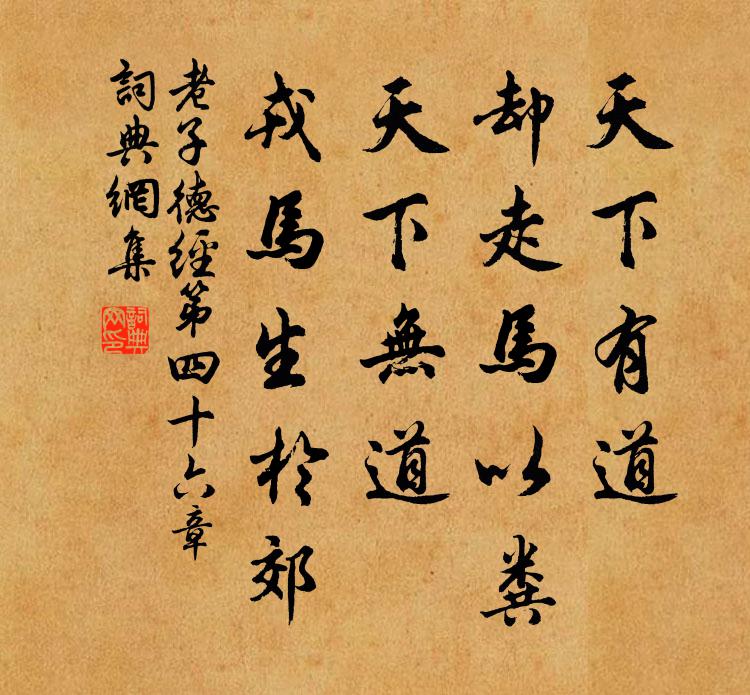 天下有道
却走馬以粪
天下無道
戎馬生於郊
老子德經第四十六章
詞典網集
詞典
网印